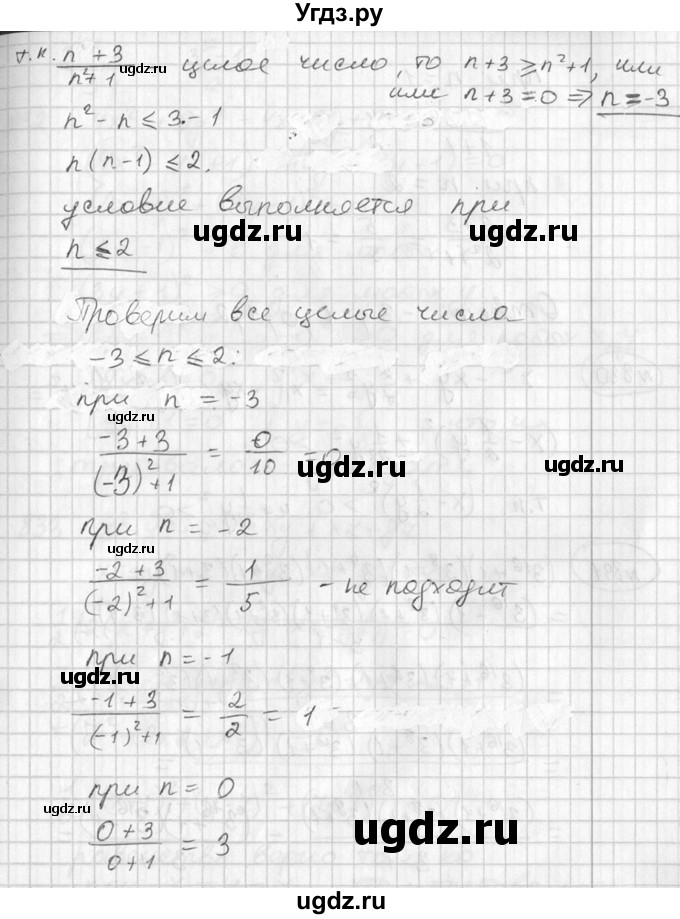 Угдз.ру
т.к. (n+3)/(n²+1) целое число, то n+3 ⩾ n²+1, или
или n+3=0 ⇒ n=-3
ugdz.ru
n² - n ⩽ 3 - 1
n(n-1) ⩽ 2.
условие выполняется при
ugdz.ru ugdz.ru
n ⩽ 2
Проверим все целые числа
-3 ⩽ n ⩽ 2:
при n = -3
ugdz.ru
(-3+3)/((-3)²+1) = 0/10 = 0
ugdz.ru ugdz.ru
при n = -2
ugdz.ru
(-2+3)/((-2)²+1) = 1/5 - не подходит
при n = -1
ugdz.ru
(-1+3)/((-1)²+1) = 2/2 = 1
при n = 0
ugdz.ru
(0+3)/(0+1) = 3
ugdz.ru
ugdz.ru